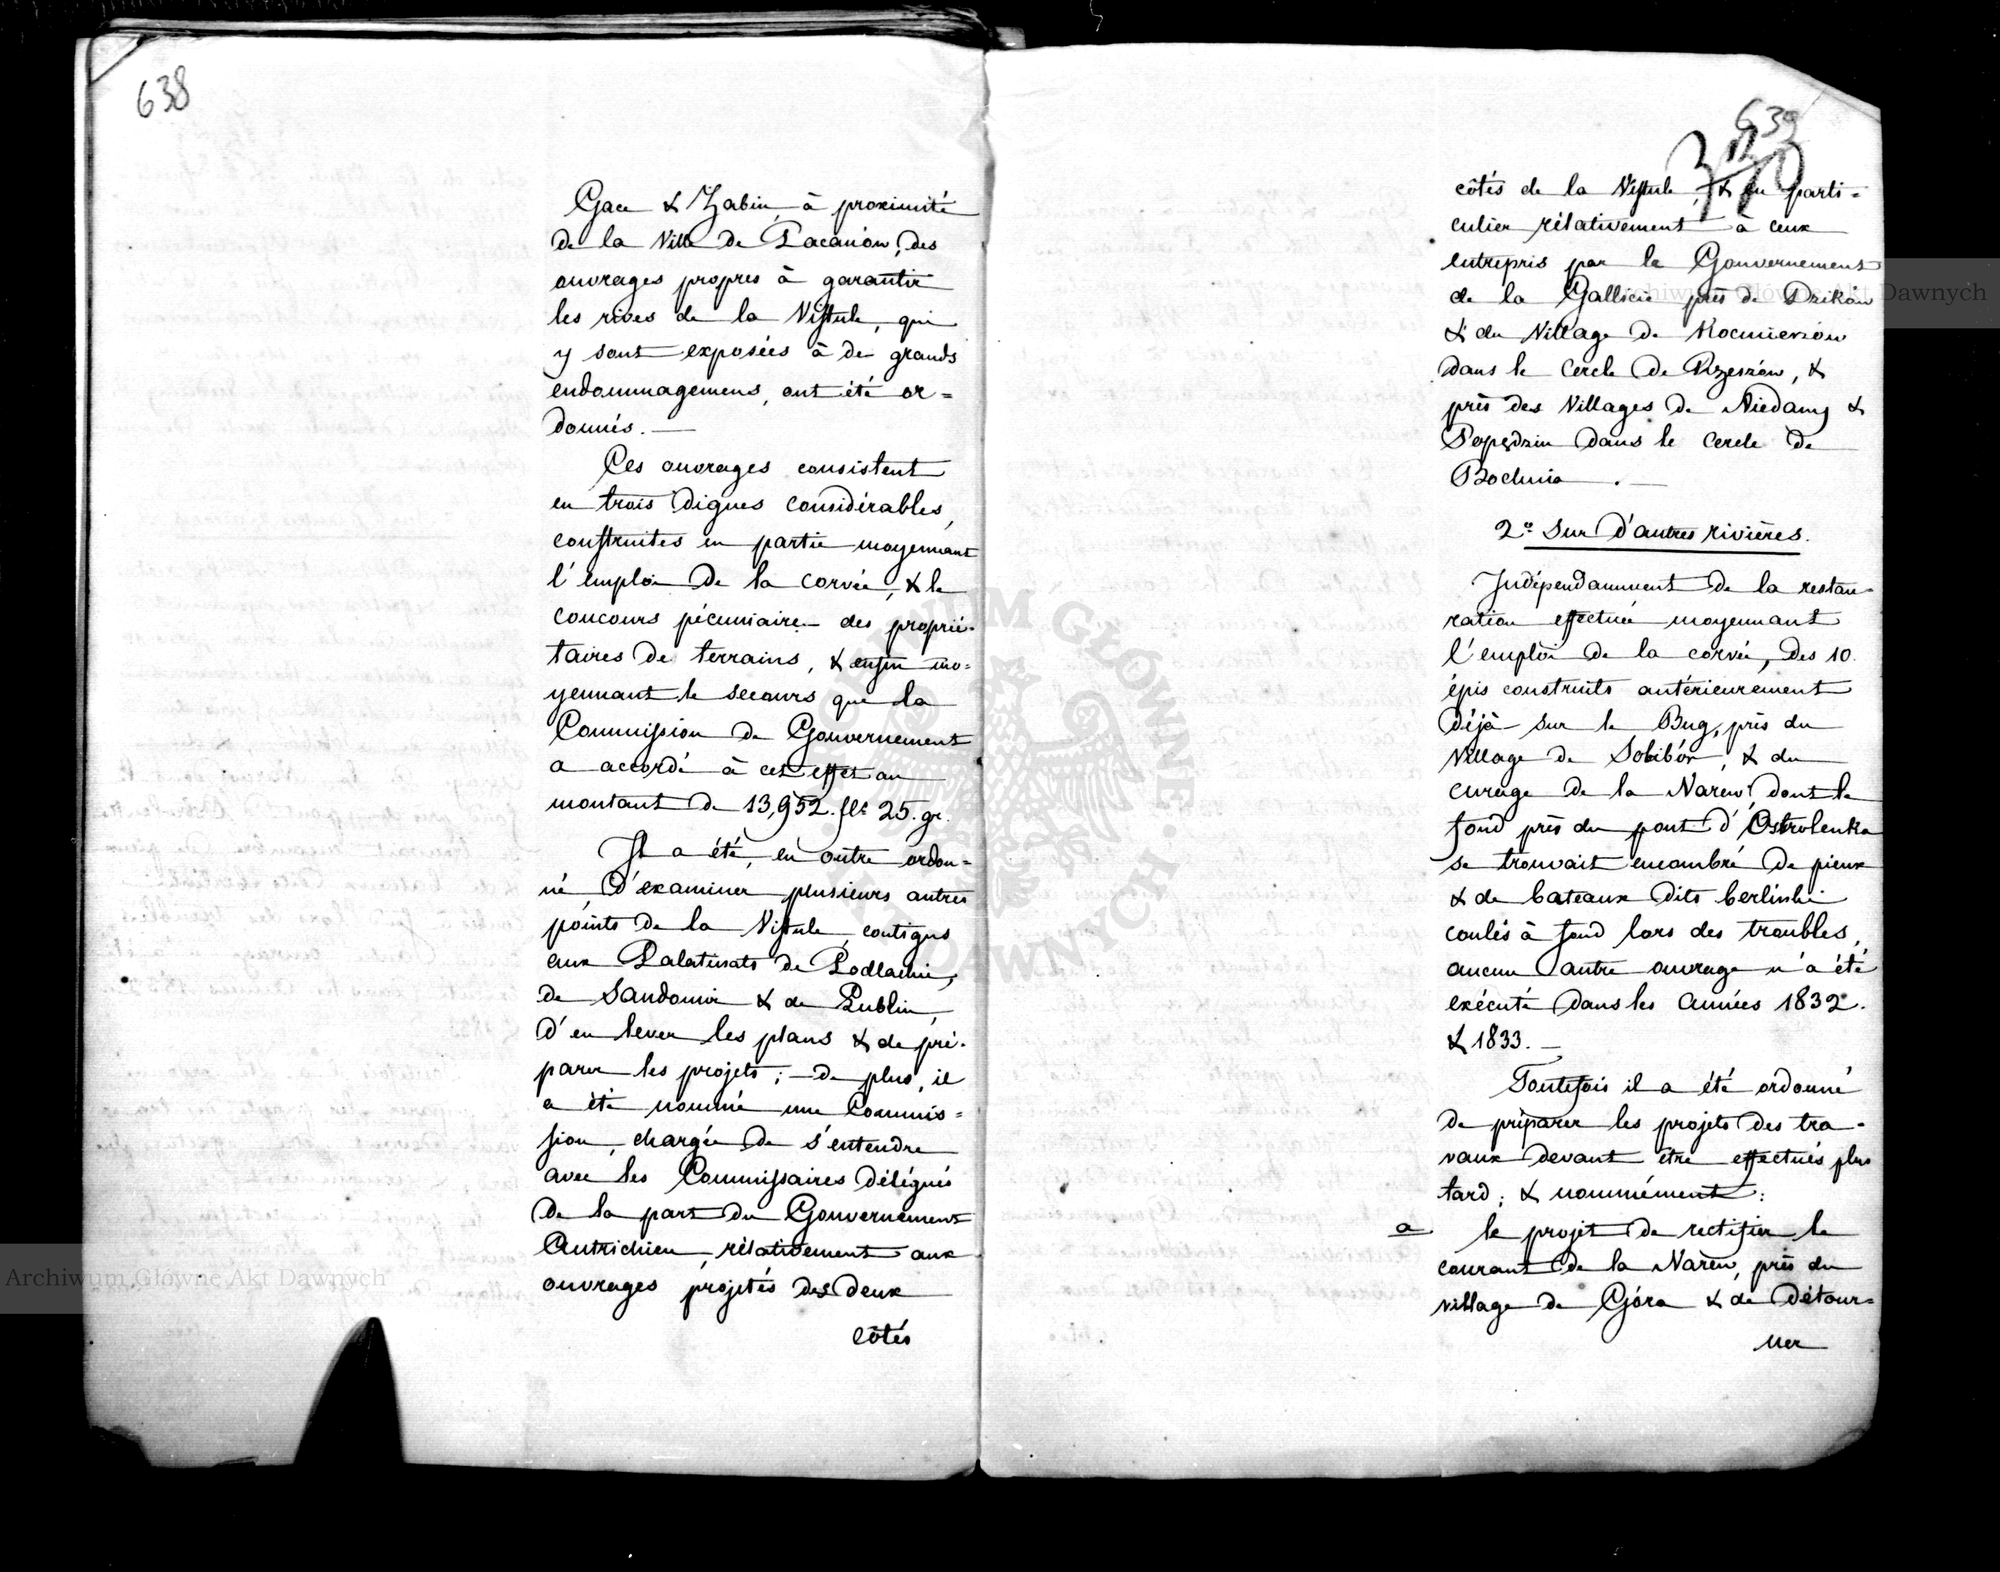 638
Gace & Zabin, à proximité
de la Ville de Pacanów, des
ouvrages propres à garantir
les rives de la Vistule, qui
y sont exposées à de grands
endommagemens, ont été or=
donnés. —
Ces ouvrages consistent
en trois digues considérables,
construites en partie moyennant
l'emploi de la corvée, & le
concours pécuniaire des proprié-
taires de terrains, & enfin mo-
yennant le secours que la
Commission de Gouvernement
a accordé à cet effet au
montant de 13,952. fls 25. gr.
Il a été, en outre ordon=
né, d'examiner plusieurs autres
points de la Vistule, contigus
aux Palatinats de Podlachie,
de Sandomir & de Lublin,
d'en lever les plans & de pré-
parer les projets; — de plus, il
a été nommé une Commis=
sion, chargée de s'entendre
avec les Commissaires délégués
de la part du Gouvernement
Autrichien, rélativement aux
ouvrages projetés des deux
côtés
639
côtés de la Vistule, & en parti=
culier rélativement à ceux
entrepris par le Gouvernement
de la Gallicie près de Dzików
& du Village de
dans le Cercle de Rzeszów, &
près des Villages de &
dans le cercle de
Bochnia. —
2° Sur d'autres rivières.
Indépendamment de la restau-
ration effectuée moyennant
l'emploi de la corvée, des 10.
épis construits antérieurement
déjà sur le Bug, près du
Village de Sobibór, & du
curage de la Narew dont le
fond près du pont d'Ostrolenka
se trouvait encombré de pieux
& de bateaux dits berlinki
coulés à fond lors des troubles,
aucun autre ouvrage n'a été
exécuté dans les Années 1832.
& 1833. —
Toutefois il a été ordonné
de préparer les projets des tra-
vaux devant être effectués plus
tard; & nommément:
a le projet de rectifier le
courant de la Narew, près du
village de Góra & de détour=
ner
Archiwum Główne Akt Dawnych
Archiwum Główne Akt Dawnych
ARCHIWUM GŁÓWNE AKT DAWNYCH